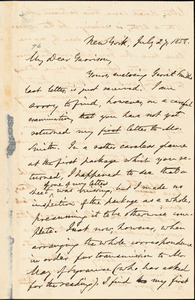 New York, July 27, 1858.
My Dear Garrison,
Yours, enclosing Gerrit Smith's
last letter, is just received. I am
sorry to find, however, on a careful
examination, that you have not yet
returned my first letter to Mr.
Smith. In a rather careless glance
at the first package which you re-
turned, I happened to see that a
sheet was missing, but I made no
one of my letters
inspection of the package as a whole,
presuming it to be otherwise com-
plete. I just now, however, when
arranging the whole correspondence
in order for transmission to Mr.
May, of Syracuse, (who has asked
for the reading,) I find my first